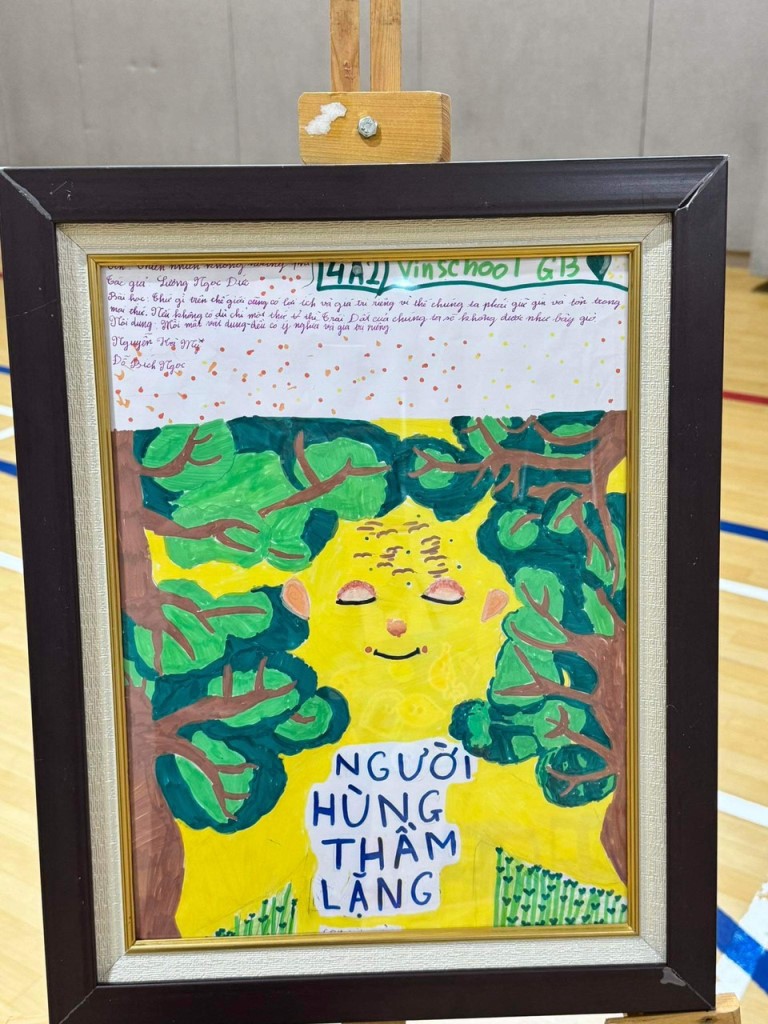 4A2 Vinschool GB
thiên nhiên không
Tác giả Lương Ngọc Dia
Bài học: Thứ gì trên thế giới cũng có lợi ích và giá trị riêng vì thế chúng ta phải giữ gìn và tôn trọng
mọi thứ. Nếu không có dù chỉ một thứ thì Trái Đất của chúng ta sẽ không được như bây giờ
Nội dung: Mỗi một vai dung đều có ý nghĩa và giá trị riêng
Nguyễn Hà My
Đỗ Bích Ngọc
NGƯỜI
HÙNG
THẦM
LẶNG